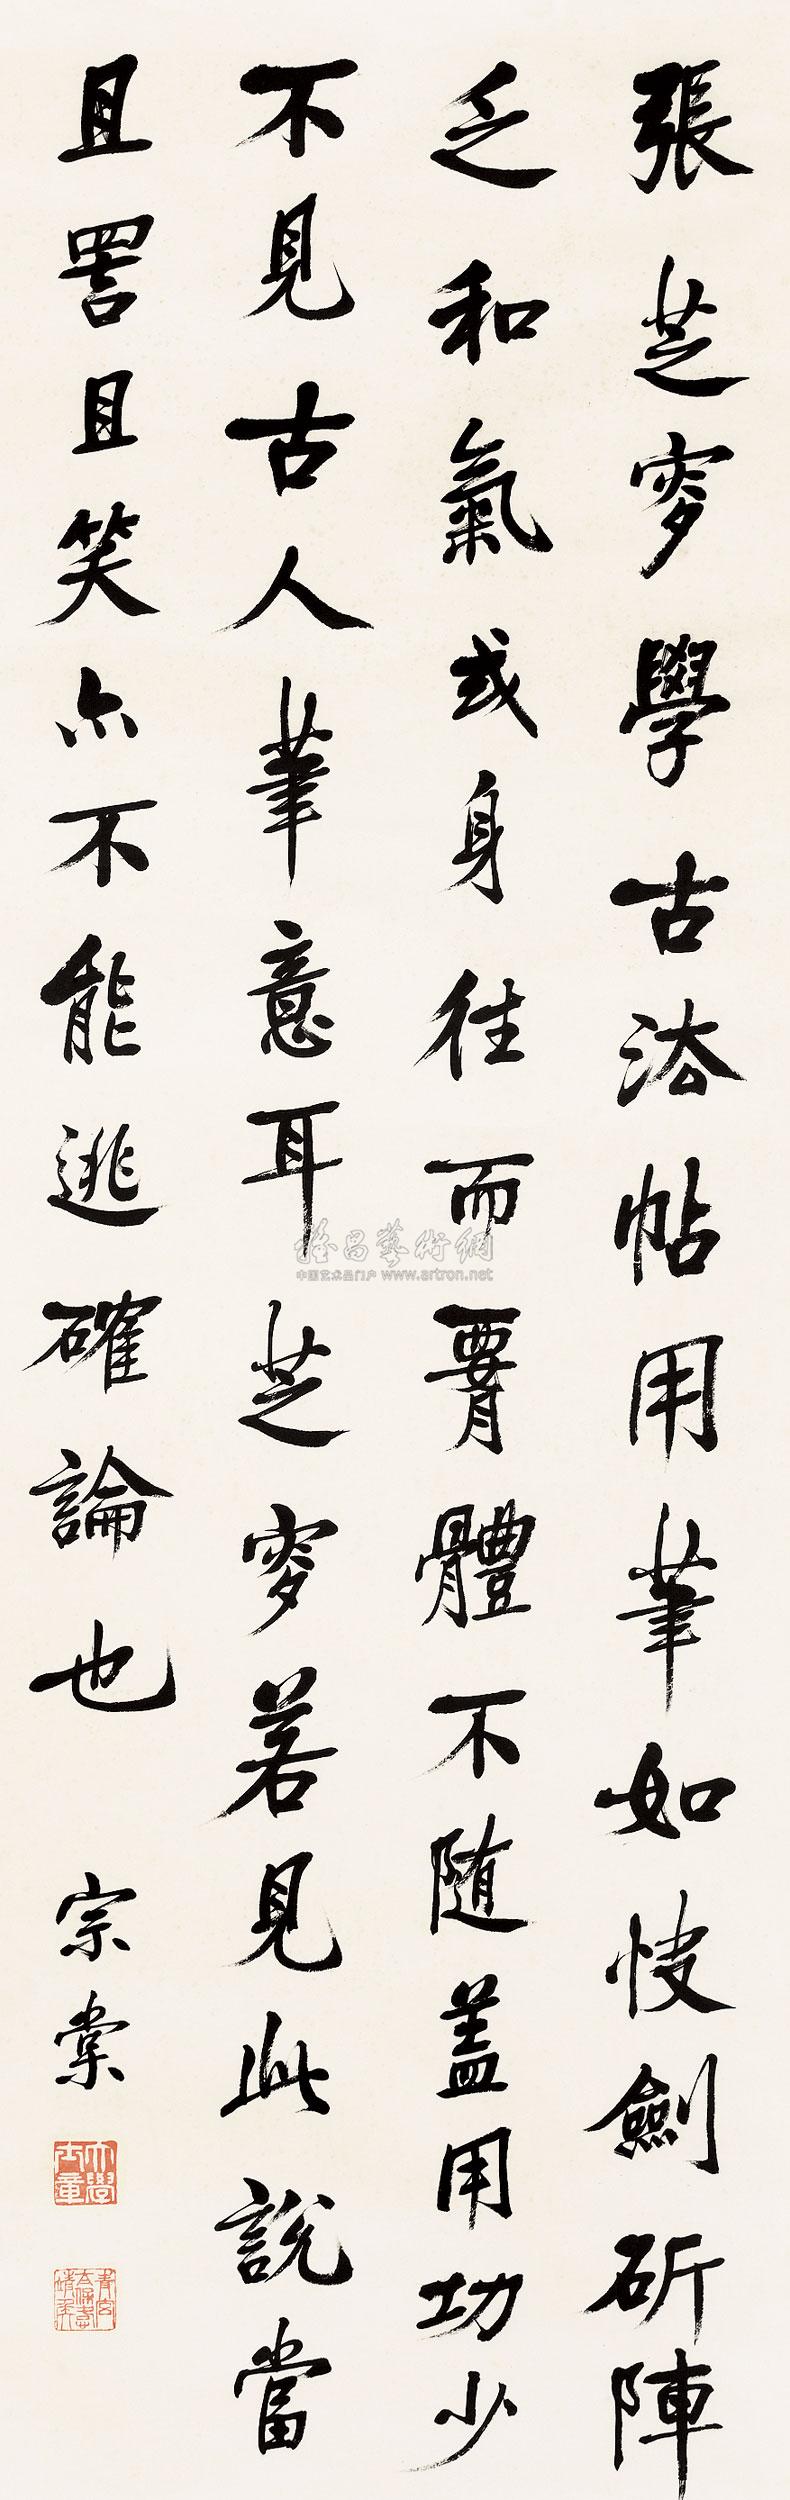 張芝叜學古法帖用筆如快劍斫陣
乏和氣或身往而腰體不隨蓋用功少
不見古人筆意耳芝叜若見此說當
且詈且笑亦不能逃確論也
宗棠
大學士章
雅昌藝術網
中国艺术品门户 www.artron.net